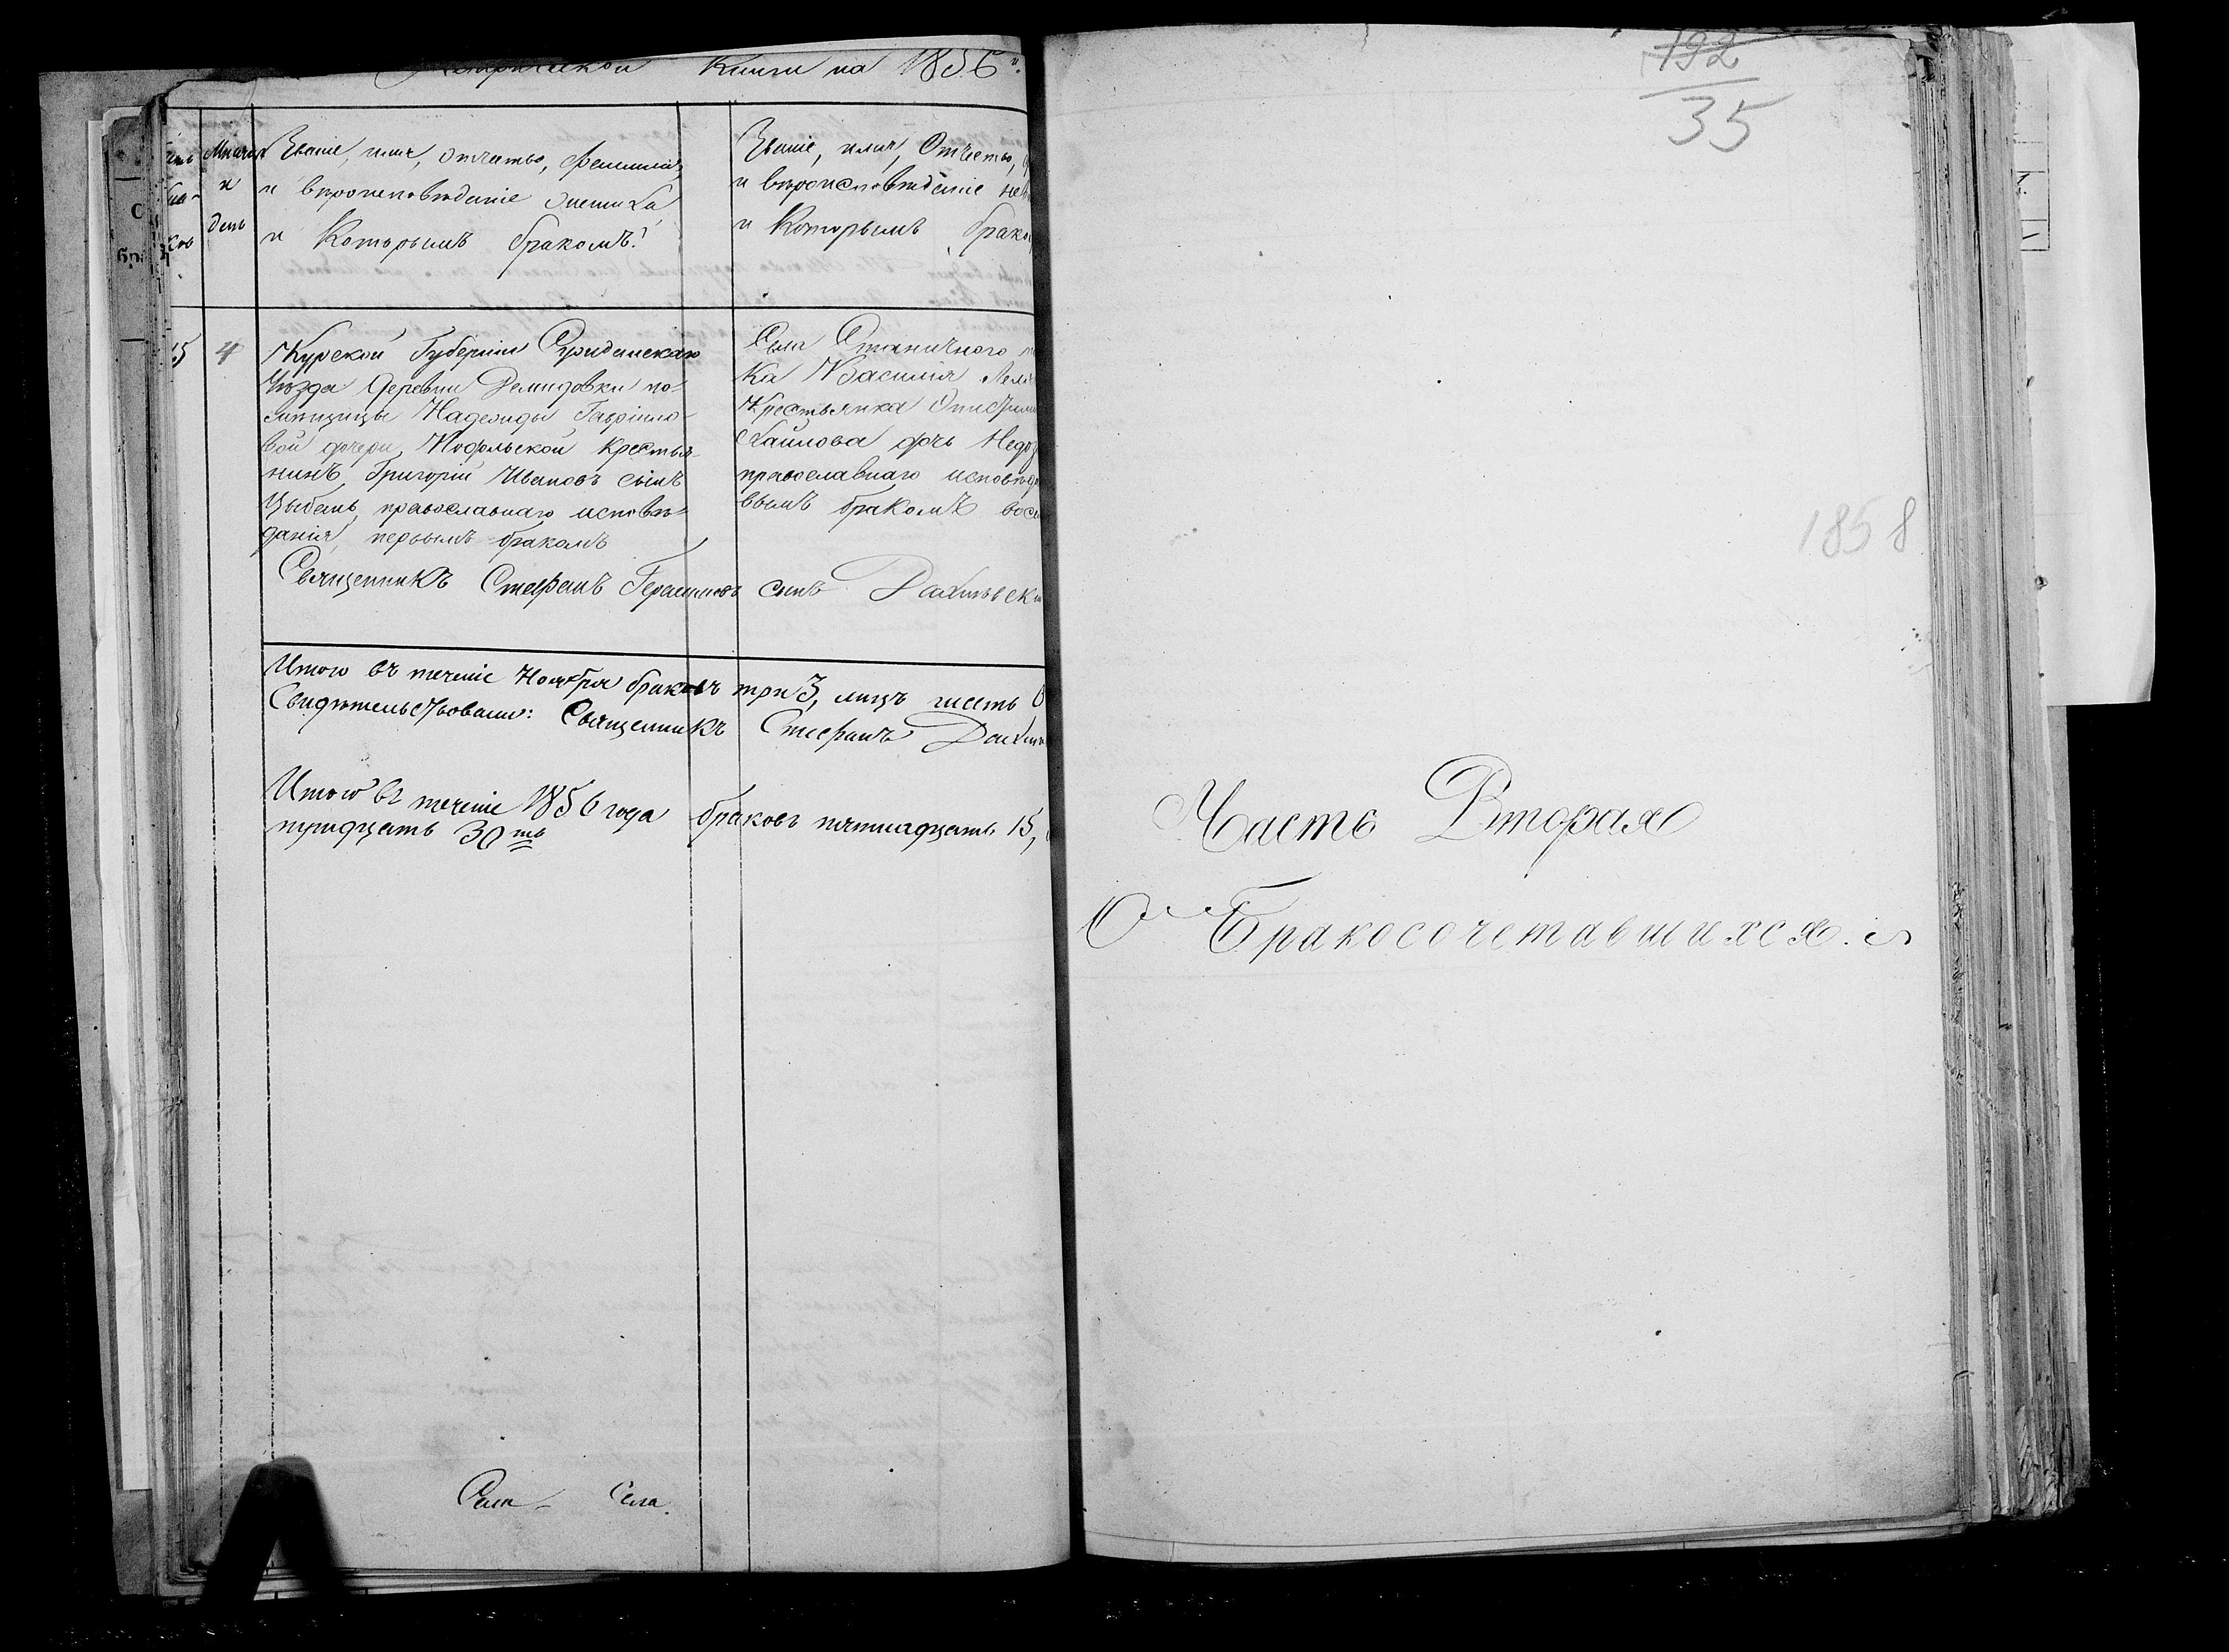 Книги на 1856
Мѣсяцъ Званіе, имя, отчество, фамилія,
и и вѣроисповѣданіе жениха
день и которымъ бракомъ.
Званіе, имя, Отчество,
и вѣроисповѣданіе не
и которымъ брако
15 4 Курской Губерніи Суджанскаго
Уѣзда деревни Демидовки по-
мѣщицы Надежды Гавріило-
вой дочери крестья-
нинъ, Григорій Ивановъ сынъ
Цыбань, православнаго исповѣ-
данія, первымъ бракомъ
Села Станичного
ка Василія
Крестьянка
хайлова дочь
православнаго исповѣд
вымъ бракомъ
Священникъ Стефанъ Герасимовъ сынъ
Итого въ теченіе Ноября браковъ три 3, лицъ шесть 6
Свидѣтельствовали: Священникъ Стефанъ
Итого въ теченіе 1856 года браковъ пятнадцать 15,
тридцать 30ть
Села
192
35
1858
Часть Вторая
О Бракосочетавшихся.